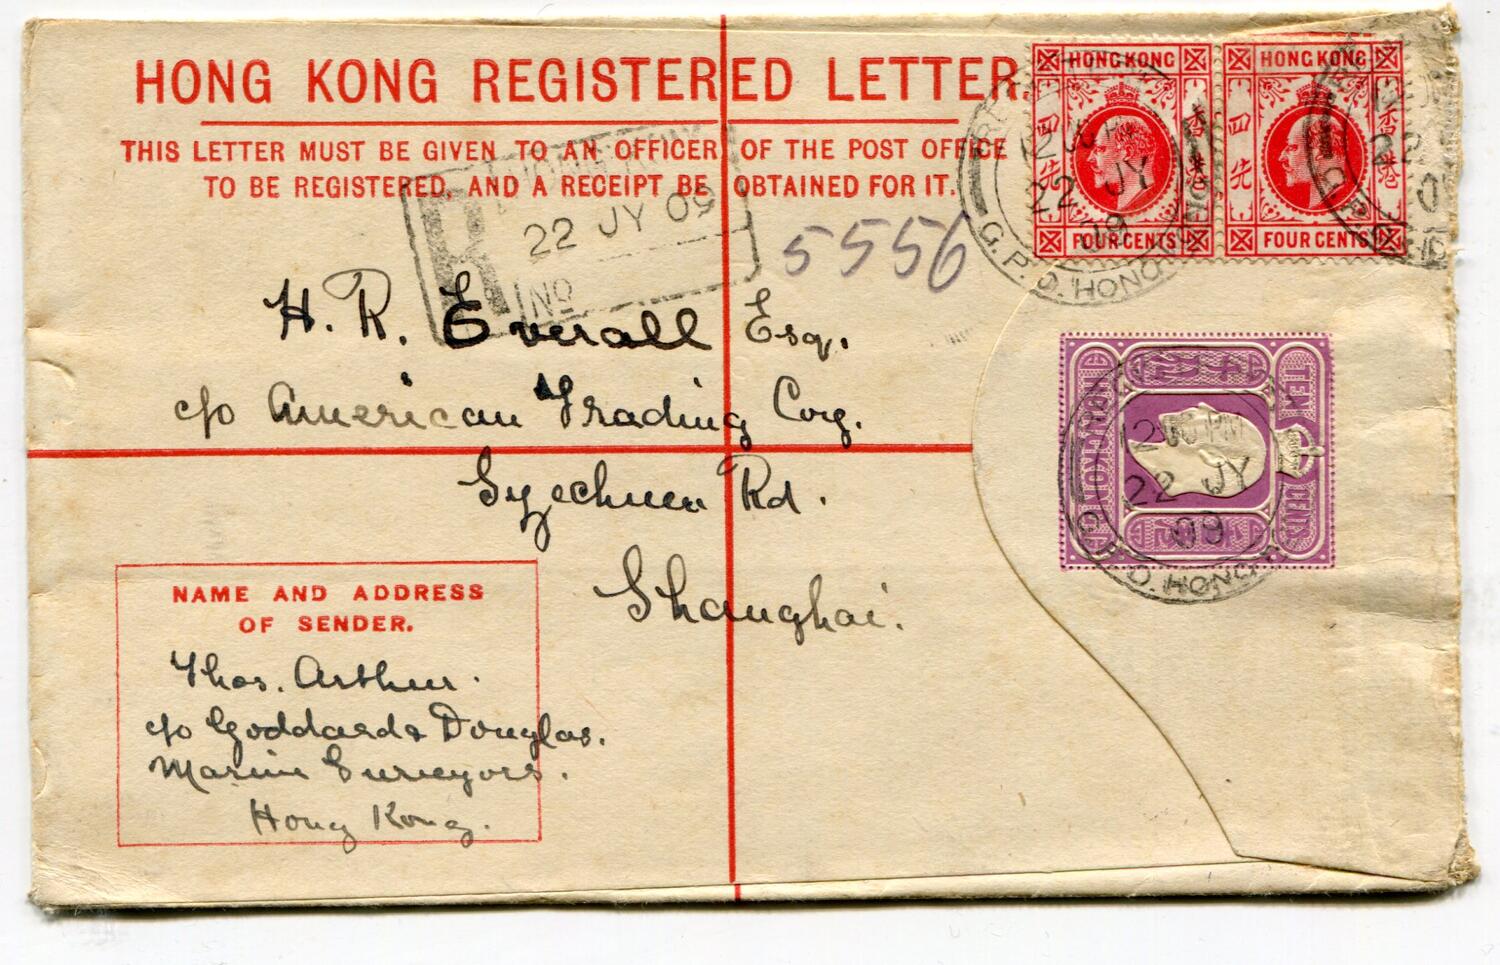 HONG KONG REGISTERED LETTER.
THIS LETTER MUST BE GIVEN TO AN OFFICER OF THE POST OFFICE
TO BE REGISTERED, AND A RECEIPT BE OBTAINED FOR IT.
HONG KONG
四先
香港
FOUR CENTS
HONG KONG
四先
香港
FOUR CENTS
12 30 PM
22 JY
09
G.P.O. HONG KONG
22
G.P.O.
R
22 JY 09
No
5556
H. R. Everall Esq.
c/o American Trading Corp.
Szechuen Rd.
Shanghai.
HONG KONG
TEN CENTS
12 30 PM
22 JY
09
G.P.O. HONG
NAME AND ADDRESS
OF SENDER.
Thos. Arthur.
c/o Goddard & Douglas.
Marine Surveyors.
Hong Kong.